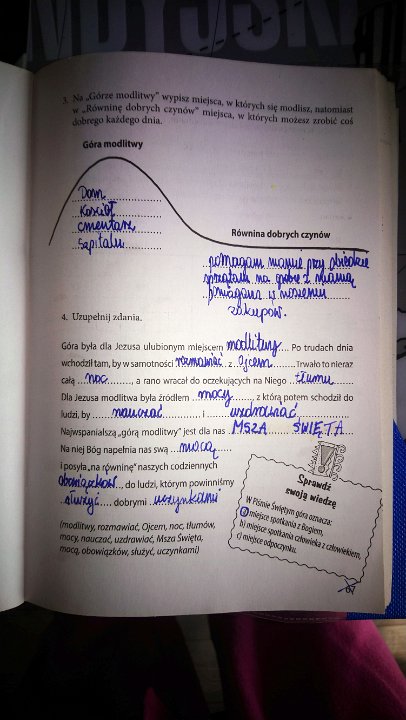 3. Na „Górze modlitwy" wypisz miejsca, w których się modlisz, natomiast
w „Równinę dobrych czynów" miejsca, w których możesz zrobić coś
dobrego każdego dnia.
Góra modlitwy
Dom
Kościół
cmentarz
Szpitalu
Równina dobrych czynów
pomagam mamie przy obiedzie
sprzątam na grobie z mamą
pomagam w noszeniu
zakupów.
4. Uzupełnij zdania.
Góra była dla Jezusa ulubionym miejscem modlitwy. Po trudach dnia
wchodził tam, by w samotności rozmawiać z Ojcem. Trwało to nieraz
całą noc, a rano wracał do oczekujących na Niego tłumu
Dla Jezusa modlitwa była źródłem mocy, z którą potem schodził do
ludzi, by nauczać i uzdrawiać
Najwspanialszą „górą modlitwy" jest dla nas MSZA ŚWIĘTA
Na niej Bóg napełnia nas swą mocą
i posyła „na równinę" naszych codziennych
obowiązków, do ludzi, którym powinniśmy
służyć dobrymi uczynkami
(modlitwy, rozmawiać, Ojcem, noc, tłumów,
mocy, nauczać, uzdrawiać, Msza Święta,
mocą, obowiązków, służyć, uczynkami)
Sprawdź
swoją wiedzę
W Piśmie Świętym góra oznacza:
a) miejsce spotkania z Bogiem,
b) miejsce spotkania człowieka z człowiekiem,
c) miejsce odpoczynku.
67